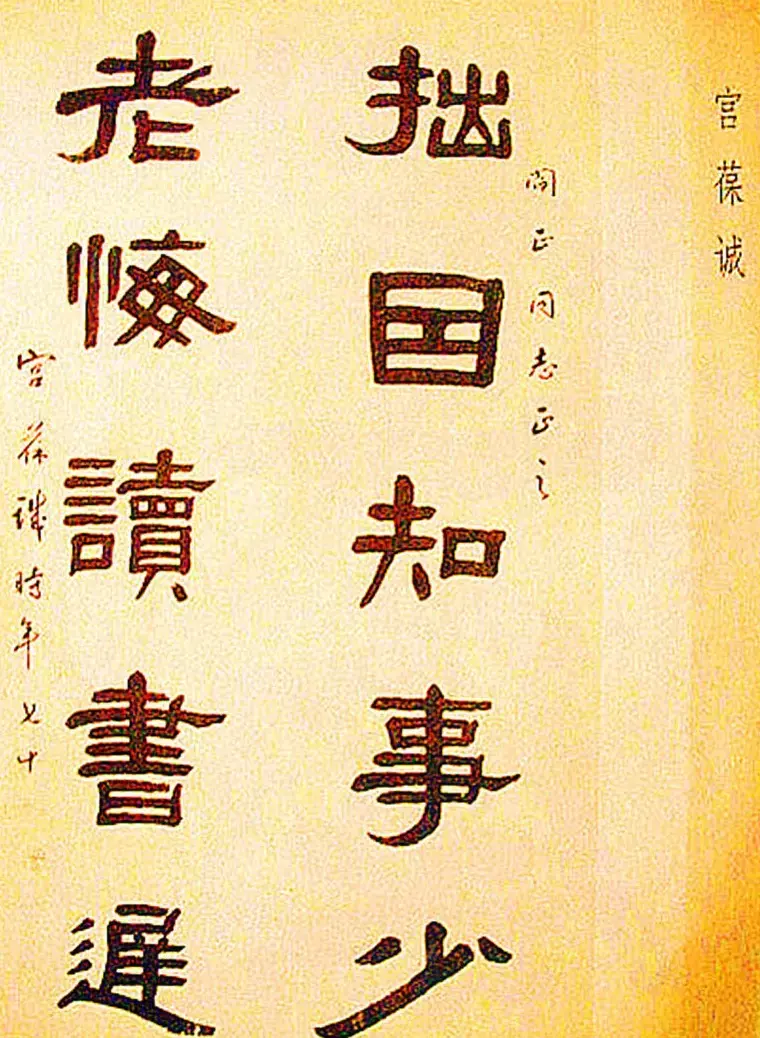 宫葆诚
阎正同志正之
拙因知事少
老悔讀書遲
宫葆诚時年七十